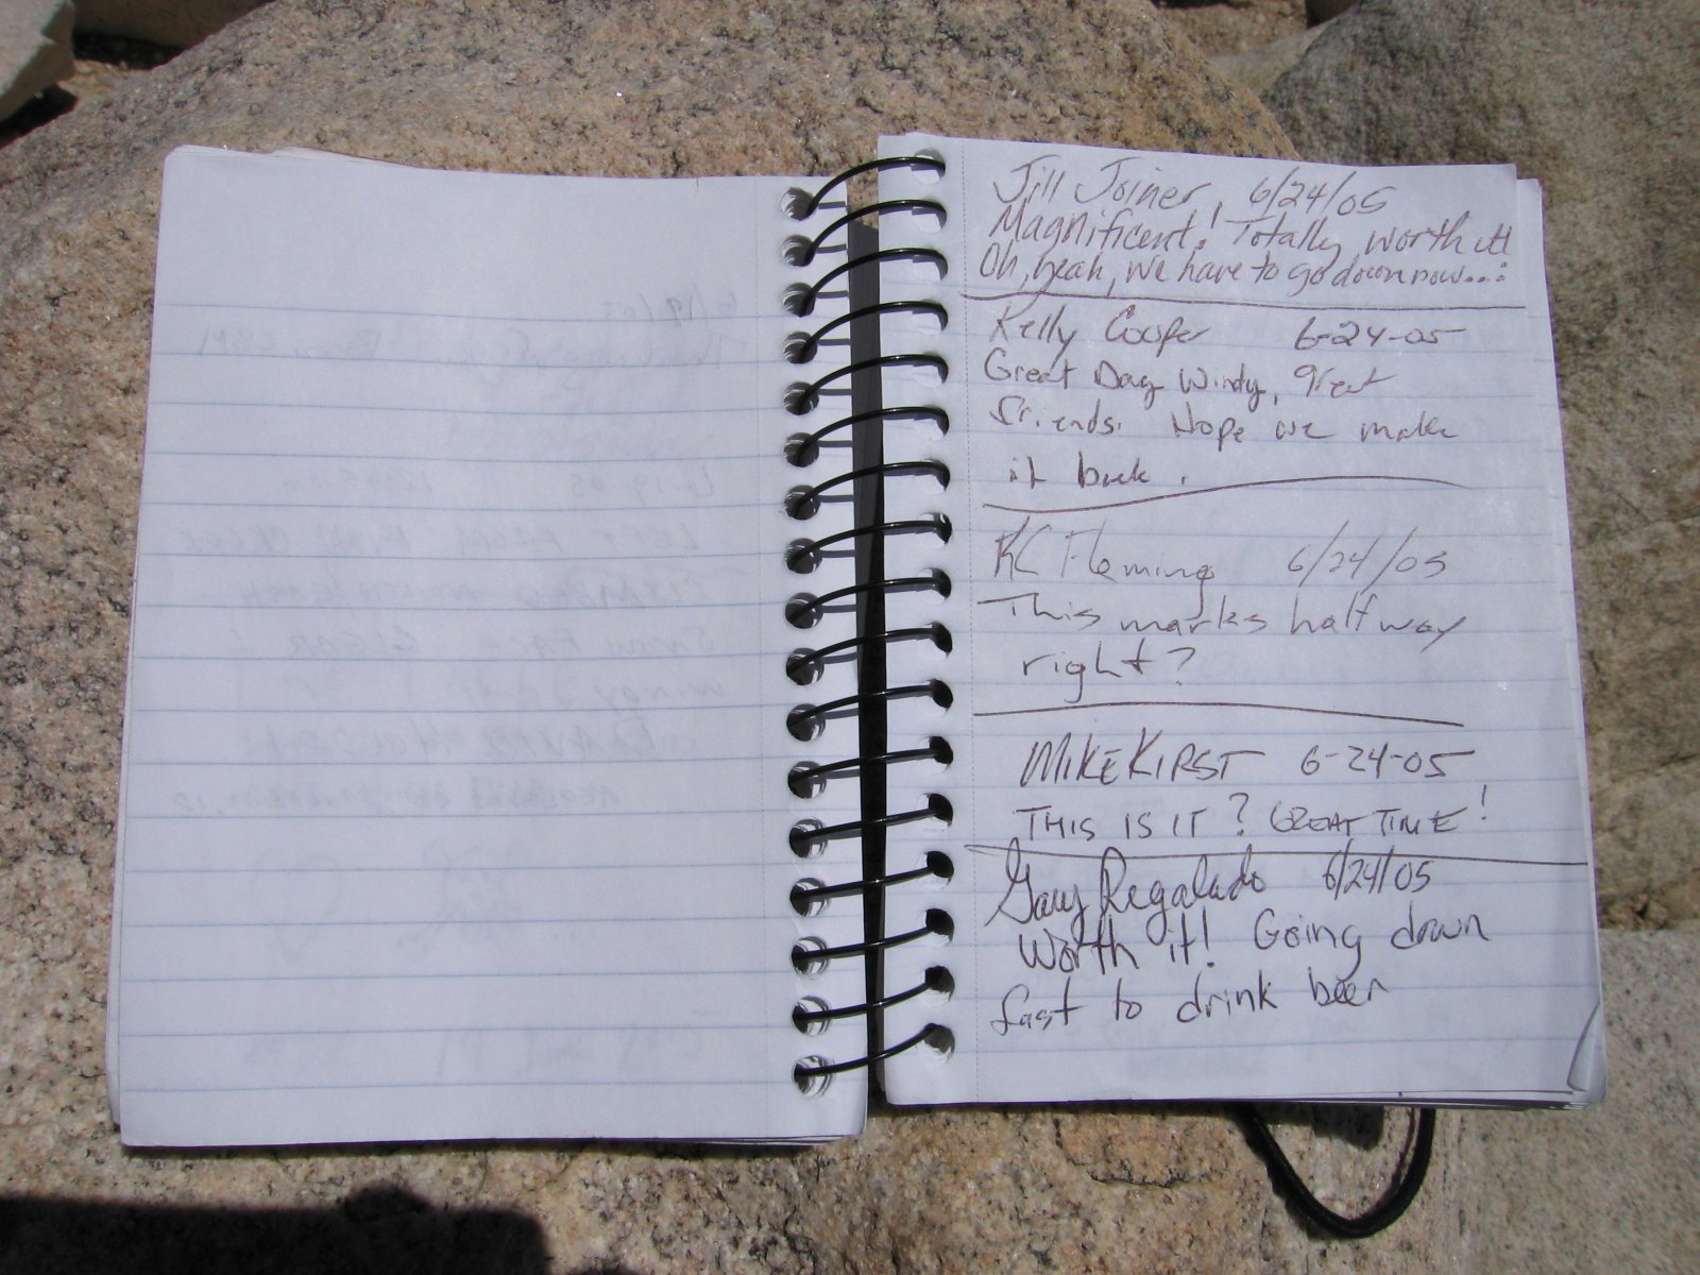 Jill Joiner, 6/24/05
Magnificent! Totally worth it!
Oh, yeah, we have to go down now...
Kelly Cooper 6-24-05
Great Day Windy, great
friends. Hope we make
it back.
KC Fleming 6/24/05
This marks halfway
right?
MIKE KIRST 6-24-05
THIS IS IT? GREAT TIME!
Gary Regalado 6/24/05
Worth it! Going down
fast to drink beer